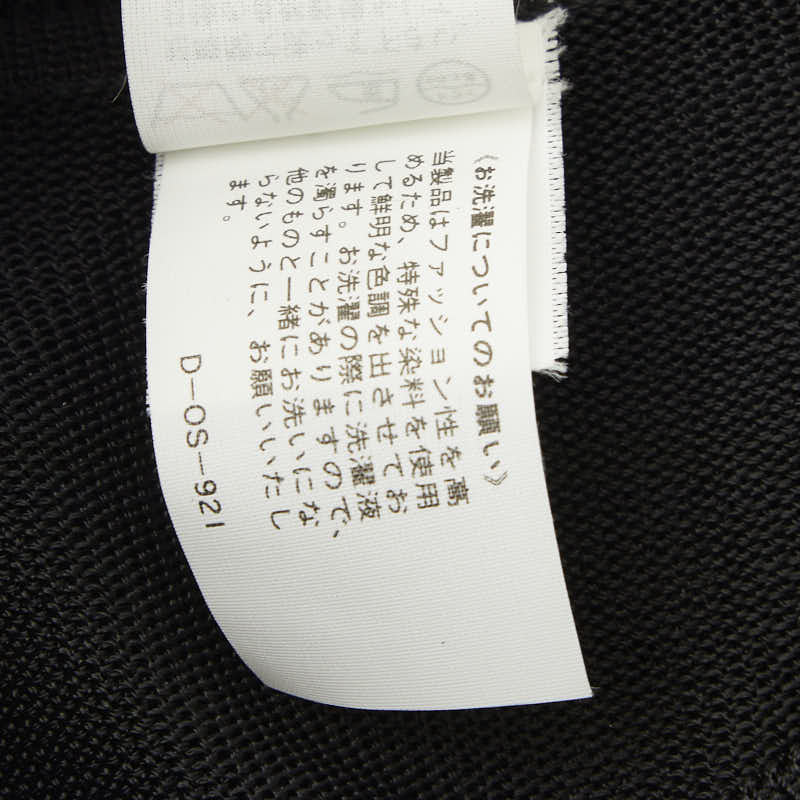 《お洗濯についてのお願い》
当製品はファッション性を高
めるため、特殊な染料を使用
して鮮明な色調を出させてお
ります。お洗濯の際に洗濯液
を濁らすことがありますので、
他のものと一緒にお洗いにな
らないように、お願いいたし
ます。
D-OS-921